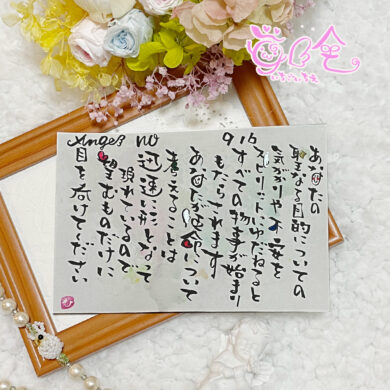 Angel No
916
あなたの
聖なる目的についての
気がかりや不安を
スピリットにゆだねると
すべての物事が始まり
もたらされます
あなたが使命について
考えることは
迅速に形となって
現れているので
望むものだけに
目を向けてください